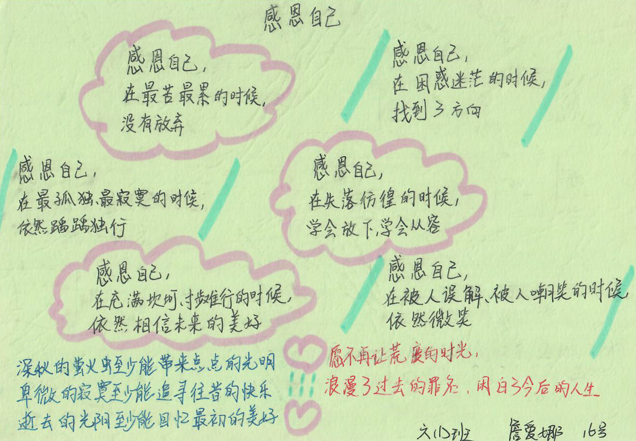 感恩自己
感恩自己，
在最苦最累的时候，
没有放弃
感恩自己，
在困惑迷茫的时候，
找到了方向
感恩自己，
在最孤独、最寂寞的时候，
依然踽踽独行
感恩自己，
在失落彷徨的时候，
学会放下，学会从容
感恩自己，
在充满坎坷、寸步难行的时候，
依然相信未来的美好
感恩自己，
在被人误解、被人嘲笑的时候
依然微笑
的萤火虫至少能带来点点的光明
卑微的寂寞至少能追寻往昔的快乐
逝去的光阴至少能回忆最初的美好
愿不再让荒废的时光，
浪漫了过去的罪名，困白了今后的人生
班 詹爱娜 16号